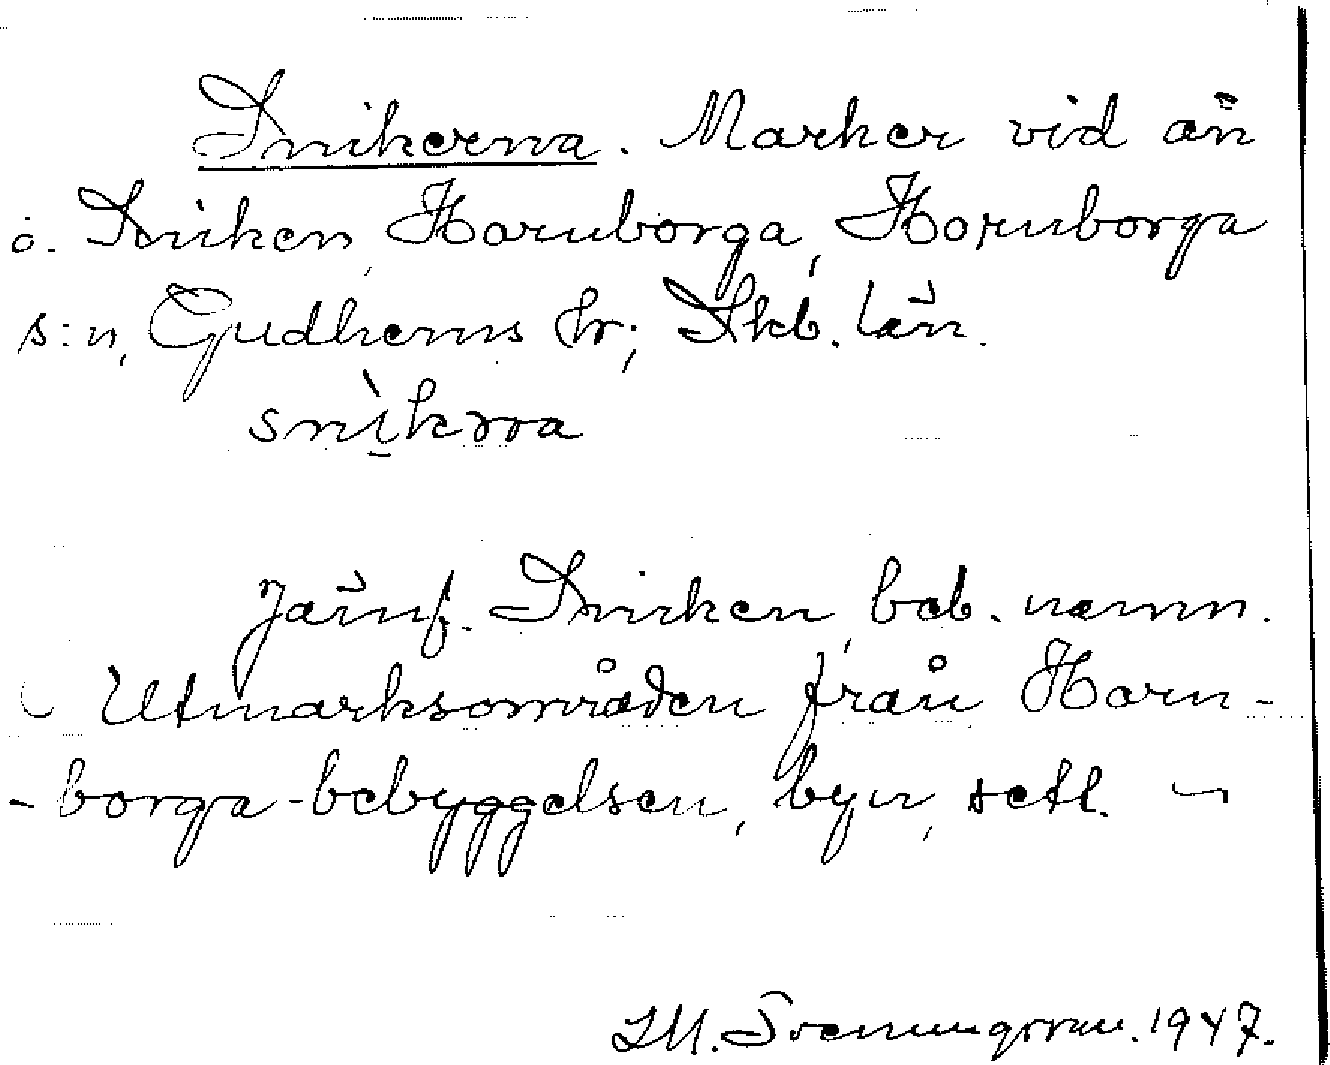 Snikerna. Marker vid ån
o. Sniken, Hornborga, Hornborga
s:n, Gudhems hr; Skb. län.
snìkṛra
Jämf. Sniken, beb. namn.
Utmarksområden från Horn-
-borga-bebyggelsen, byn, setl.
S.M. Svenungsson. 1947.